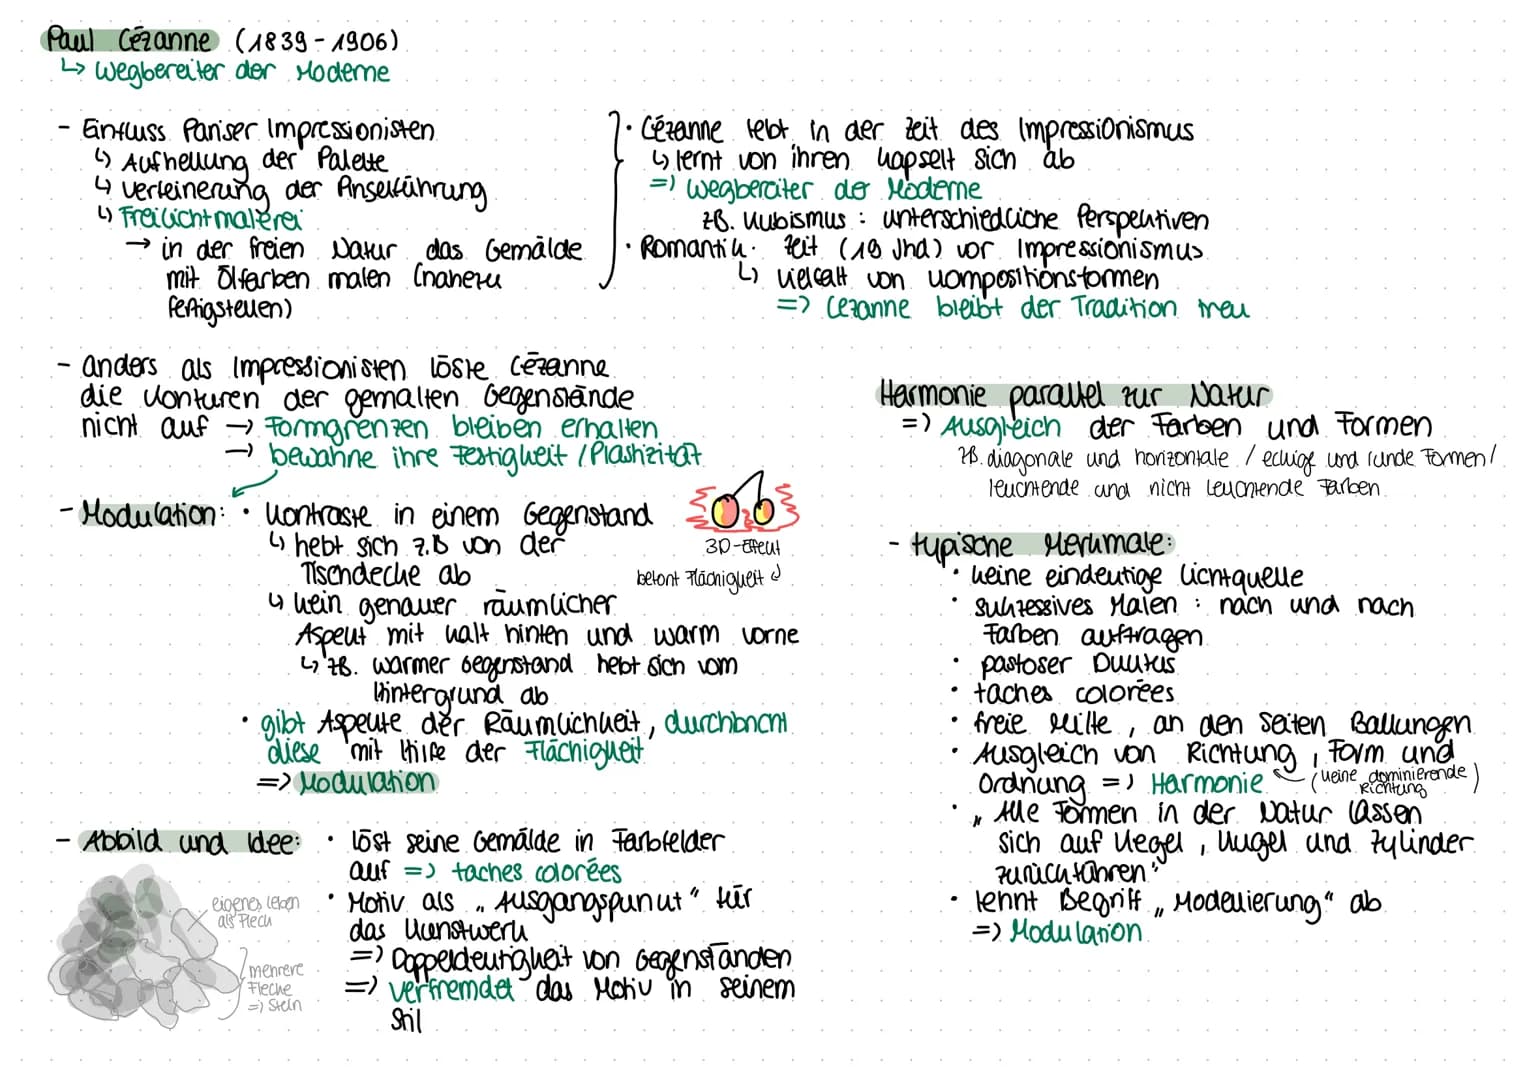 Paul Cézanne (1839 - 1906)
↳ Wegbereiter der Moderne
- Einfluss Pariser Impressionisten
↳ Aufhellung der Palette
↳ Verfeinerung der Pinselführung
↳ Freilichtmalerei
→ in der freien Natur das Gemälde
mit Ölfarben malen (nahezu
fertigstellen)
• Cézanne lebt in der Zeit des Impressionismus
↳ lernt von ihren kapselt sich ab
=> Wegbereiter der Moderne
zB. Kubismus : unterschiedliche Perspektiven
• Romantik. Zeit (19 Jhd) vor Impressionismus
↳ Vielfalt von Kompositionsformen
=> Cezanne bleibt der Tradition treu
- anders als Impressionisten löste Cézanne
die Konturen der gemalten Gegenstände
nicht auf → Formgrenzen bleiben erhalten
→ bewahre ihre Festigkeit / Plastizität
- Modulation: • Kontraste in einem Gegenstand
↳ hebt sich z.B von der
Tischdecke ab
↳ kein genauer räumlicher
Aspekt mit kalt hinten und warm vorne
↳ zB. warmer Gegenstand hebt sich vom
Hintergrund ab
• gibt Aspekte der Räumlichkeit, durchbricht
diese mit Hilfe der Flächigkeit
=> Modulation
3D-Effekt
betont Flächigkeit
- Abbild und Idee: • löst seine Gemälde in Farbfelder
auf => taches colorées
• Motiv als „Ausgangspunkt" für
das Kunstwerk
=> Doppeldeutigkeit von Gegenständen
=> verfremdet das Motiv in seinem
Stil
eigenes leben
als Fleck
mehrere
Flecke
=> Stein
Harmonie parallel zur Natur
=> Ausgleich der Farben und Formen
zB. diagonale und horizontale / eckige und runde Formen /
leuchtende und nicht leuchtende Farben
- typische Merkmale:
• keine eindeutige Lichtquelle
• sukzessives Malen : nach und nach
Farben auftragen
• pastoser Duktus
• taches colorées
• freie Mitte, an den Seiten Ballungen
• Ausgleich von Richtung, Form und
Ordnung => Harmonie (keine dominierende
Richtung)
• „Alle Formen in der Natur lassen
sich auf Kegel, Kugel und Zylinder
zurückführen"
• lehnt Begriff „Modellierung" ab
=> Modulation